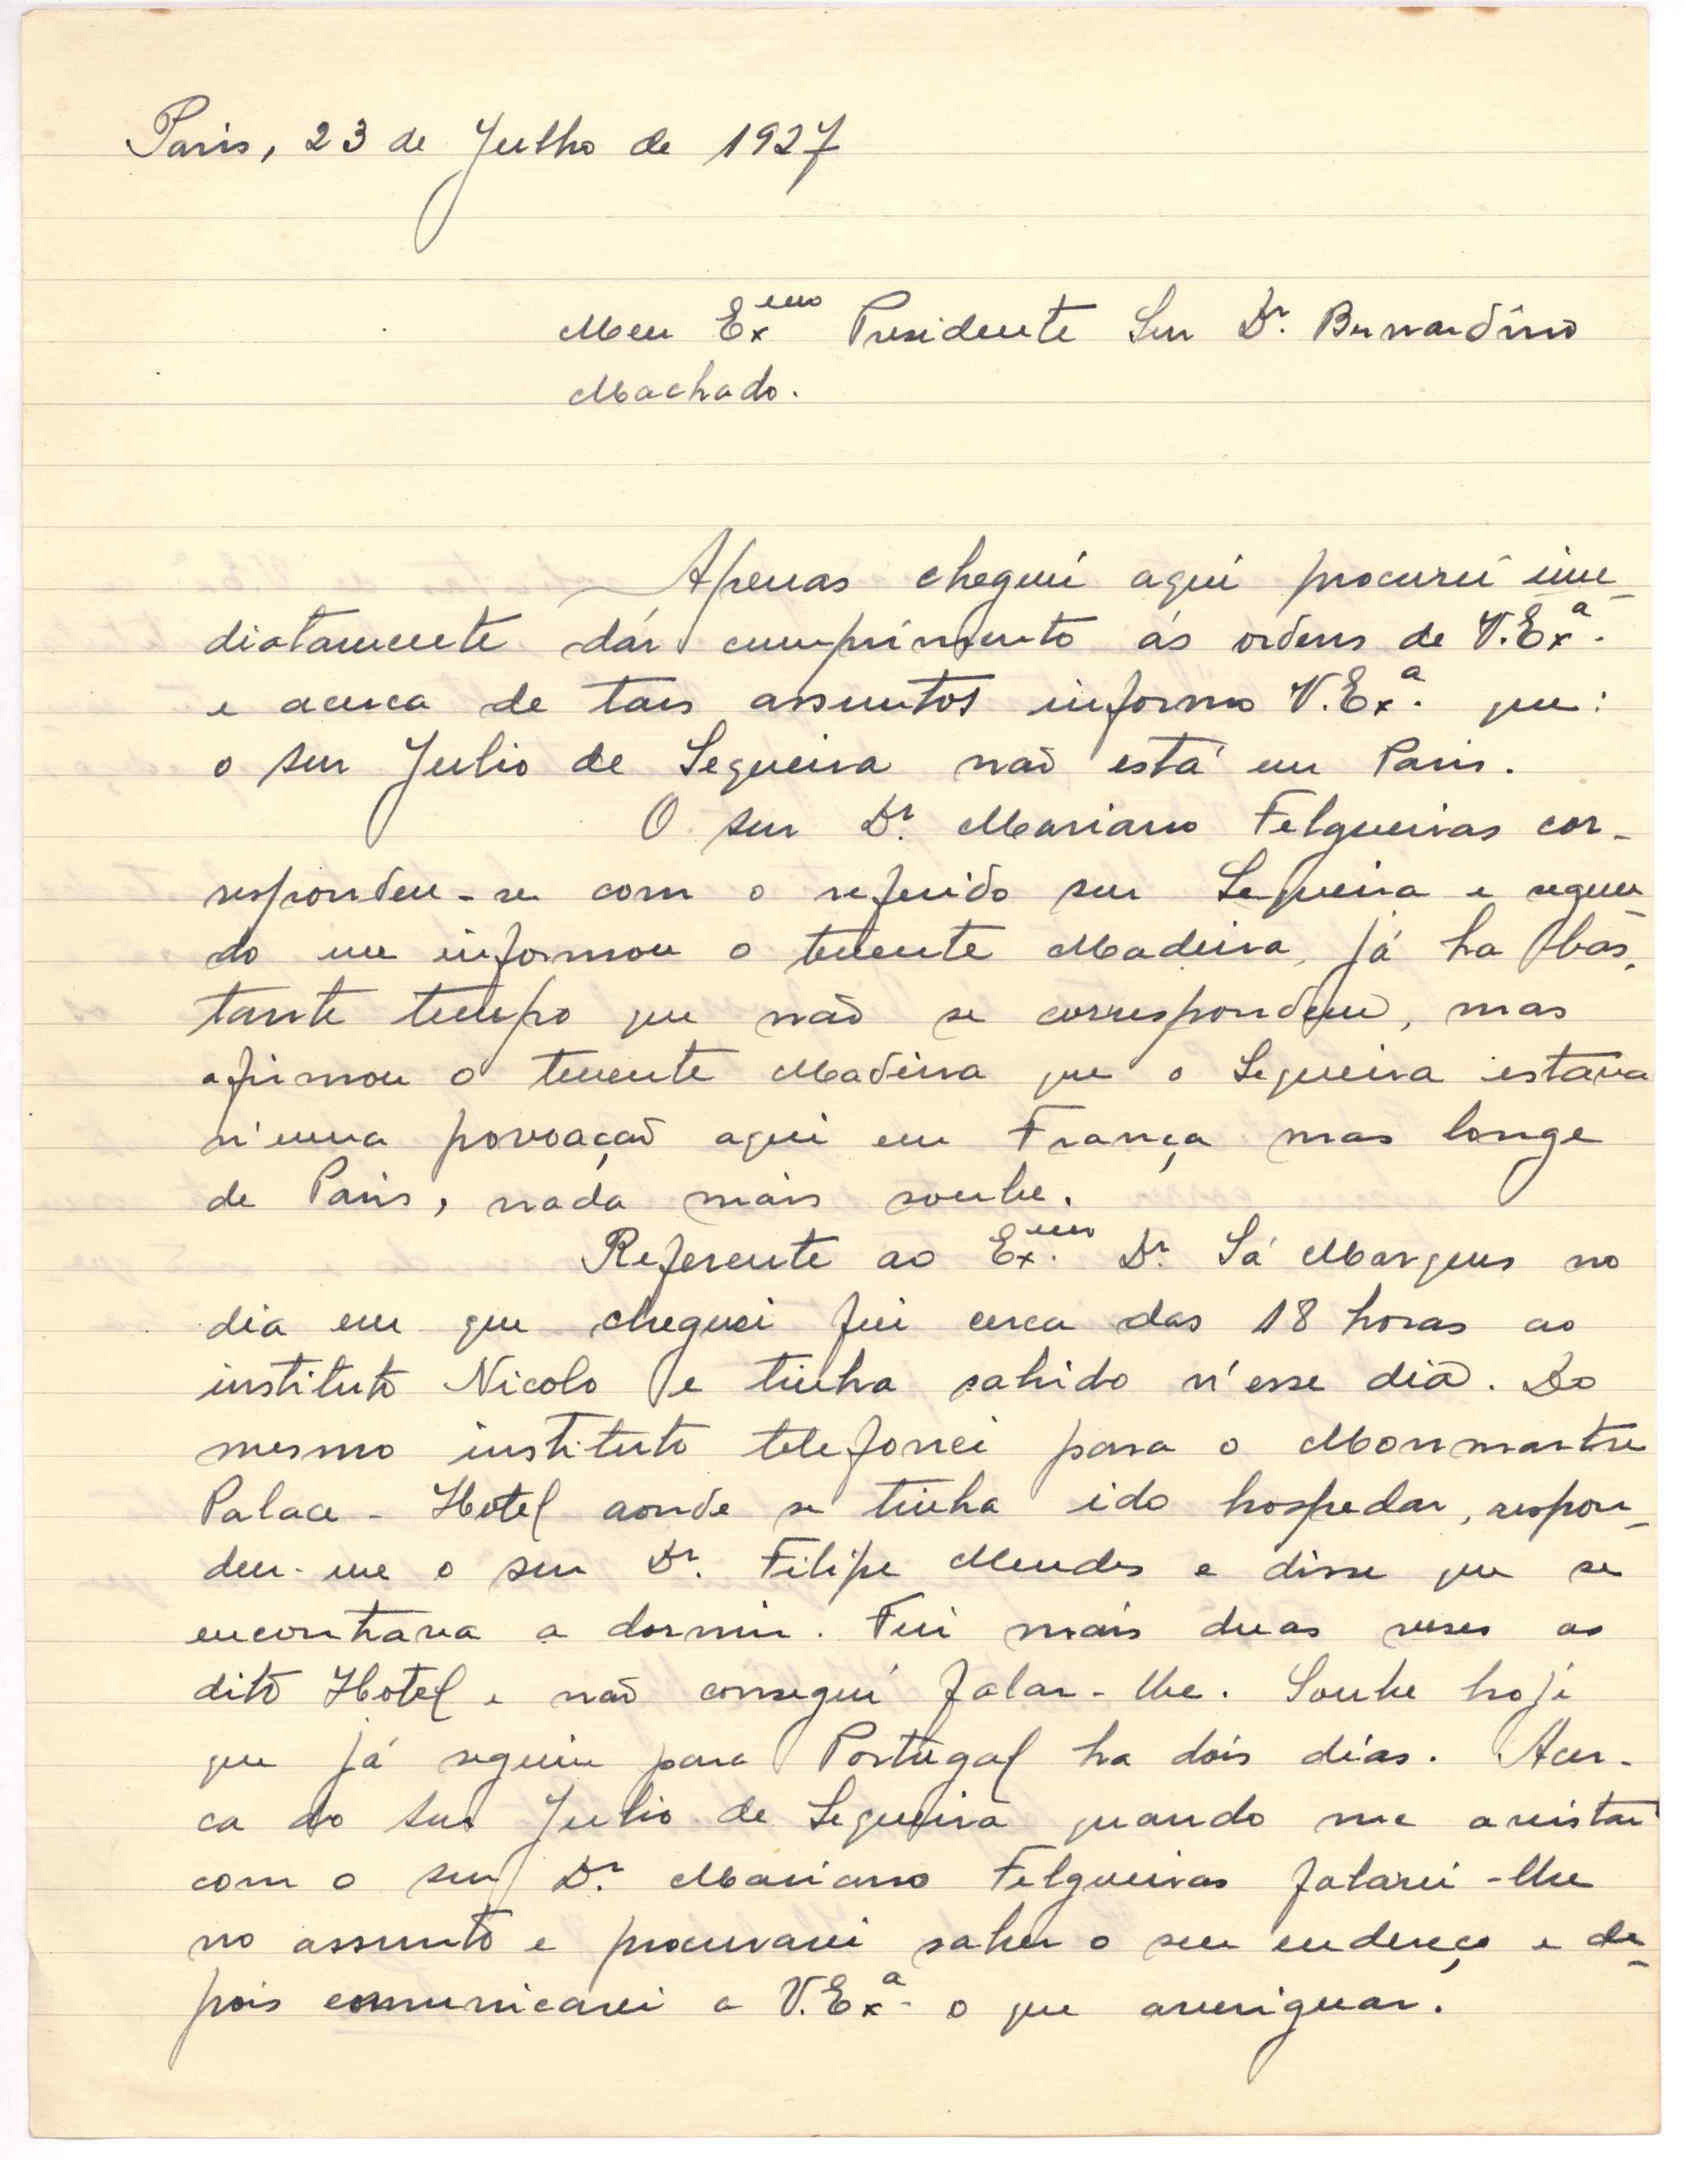 Paris, 23 de Julho de 1927
Meu Exmo Presidente Snr Dr. Bernardino
Machado.
Apenas cheguei aqui procurei ime-
diatamente dár cumprimento ás ordens de V. Exª.
e acerca de tais assuntos informo V. Exª. que:
o snr Julio de Sequeira não está em Paris.
O snr Dr. Mariano Felgueiras cor-
respondeu-se com o referido snr Sequeira e segun-
do me informou o tenente Madeira, já ha bas-
tante tempo que não se correspondem, mas
afirmou o tenente Madeira que o Sequeira estava
n'uma povoação aqui em França mas longe
de Paris, nada mais soube.
Referente ao Exmo. Dr. Sá Marques no
dia em que cheguei fui cerca das 18 horas ao
instituto Nicolo e tinha sahido n'esse dia. Do
mesmo instituto telefonei para o Monmartre
Palace-Hotel aonde se tinha ido hospedar, respon-
deu-me o snr Dr. Filipe Mendes e disse que se
encontrava a dormir. Fui mais duas veses ao
dito Hotel e não consegui falar-lhe. Soube hoje
que já seguiu para Portugal ha dois dias. Acer-
ca do snr Julio de Sequeira quando me avistar
com o snr Dr. Mariano Felgueiras falarei-lhe
no assunto e procurarei saber o seu endereço e de-
pois comunicarei a V. Exª. o que averiguar.